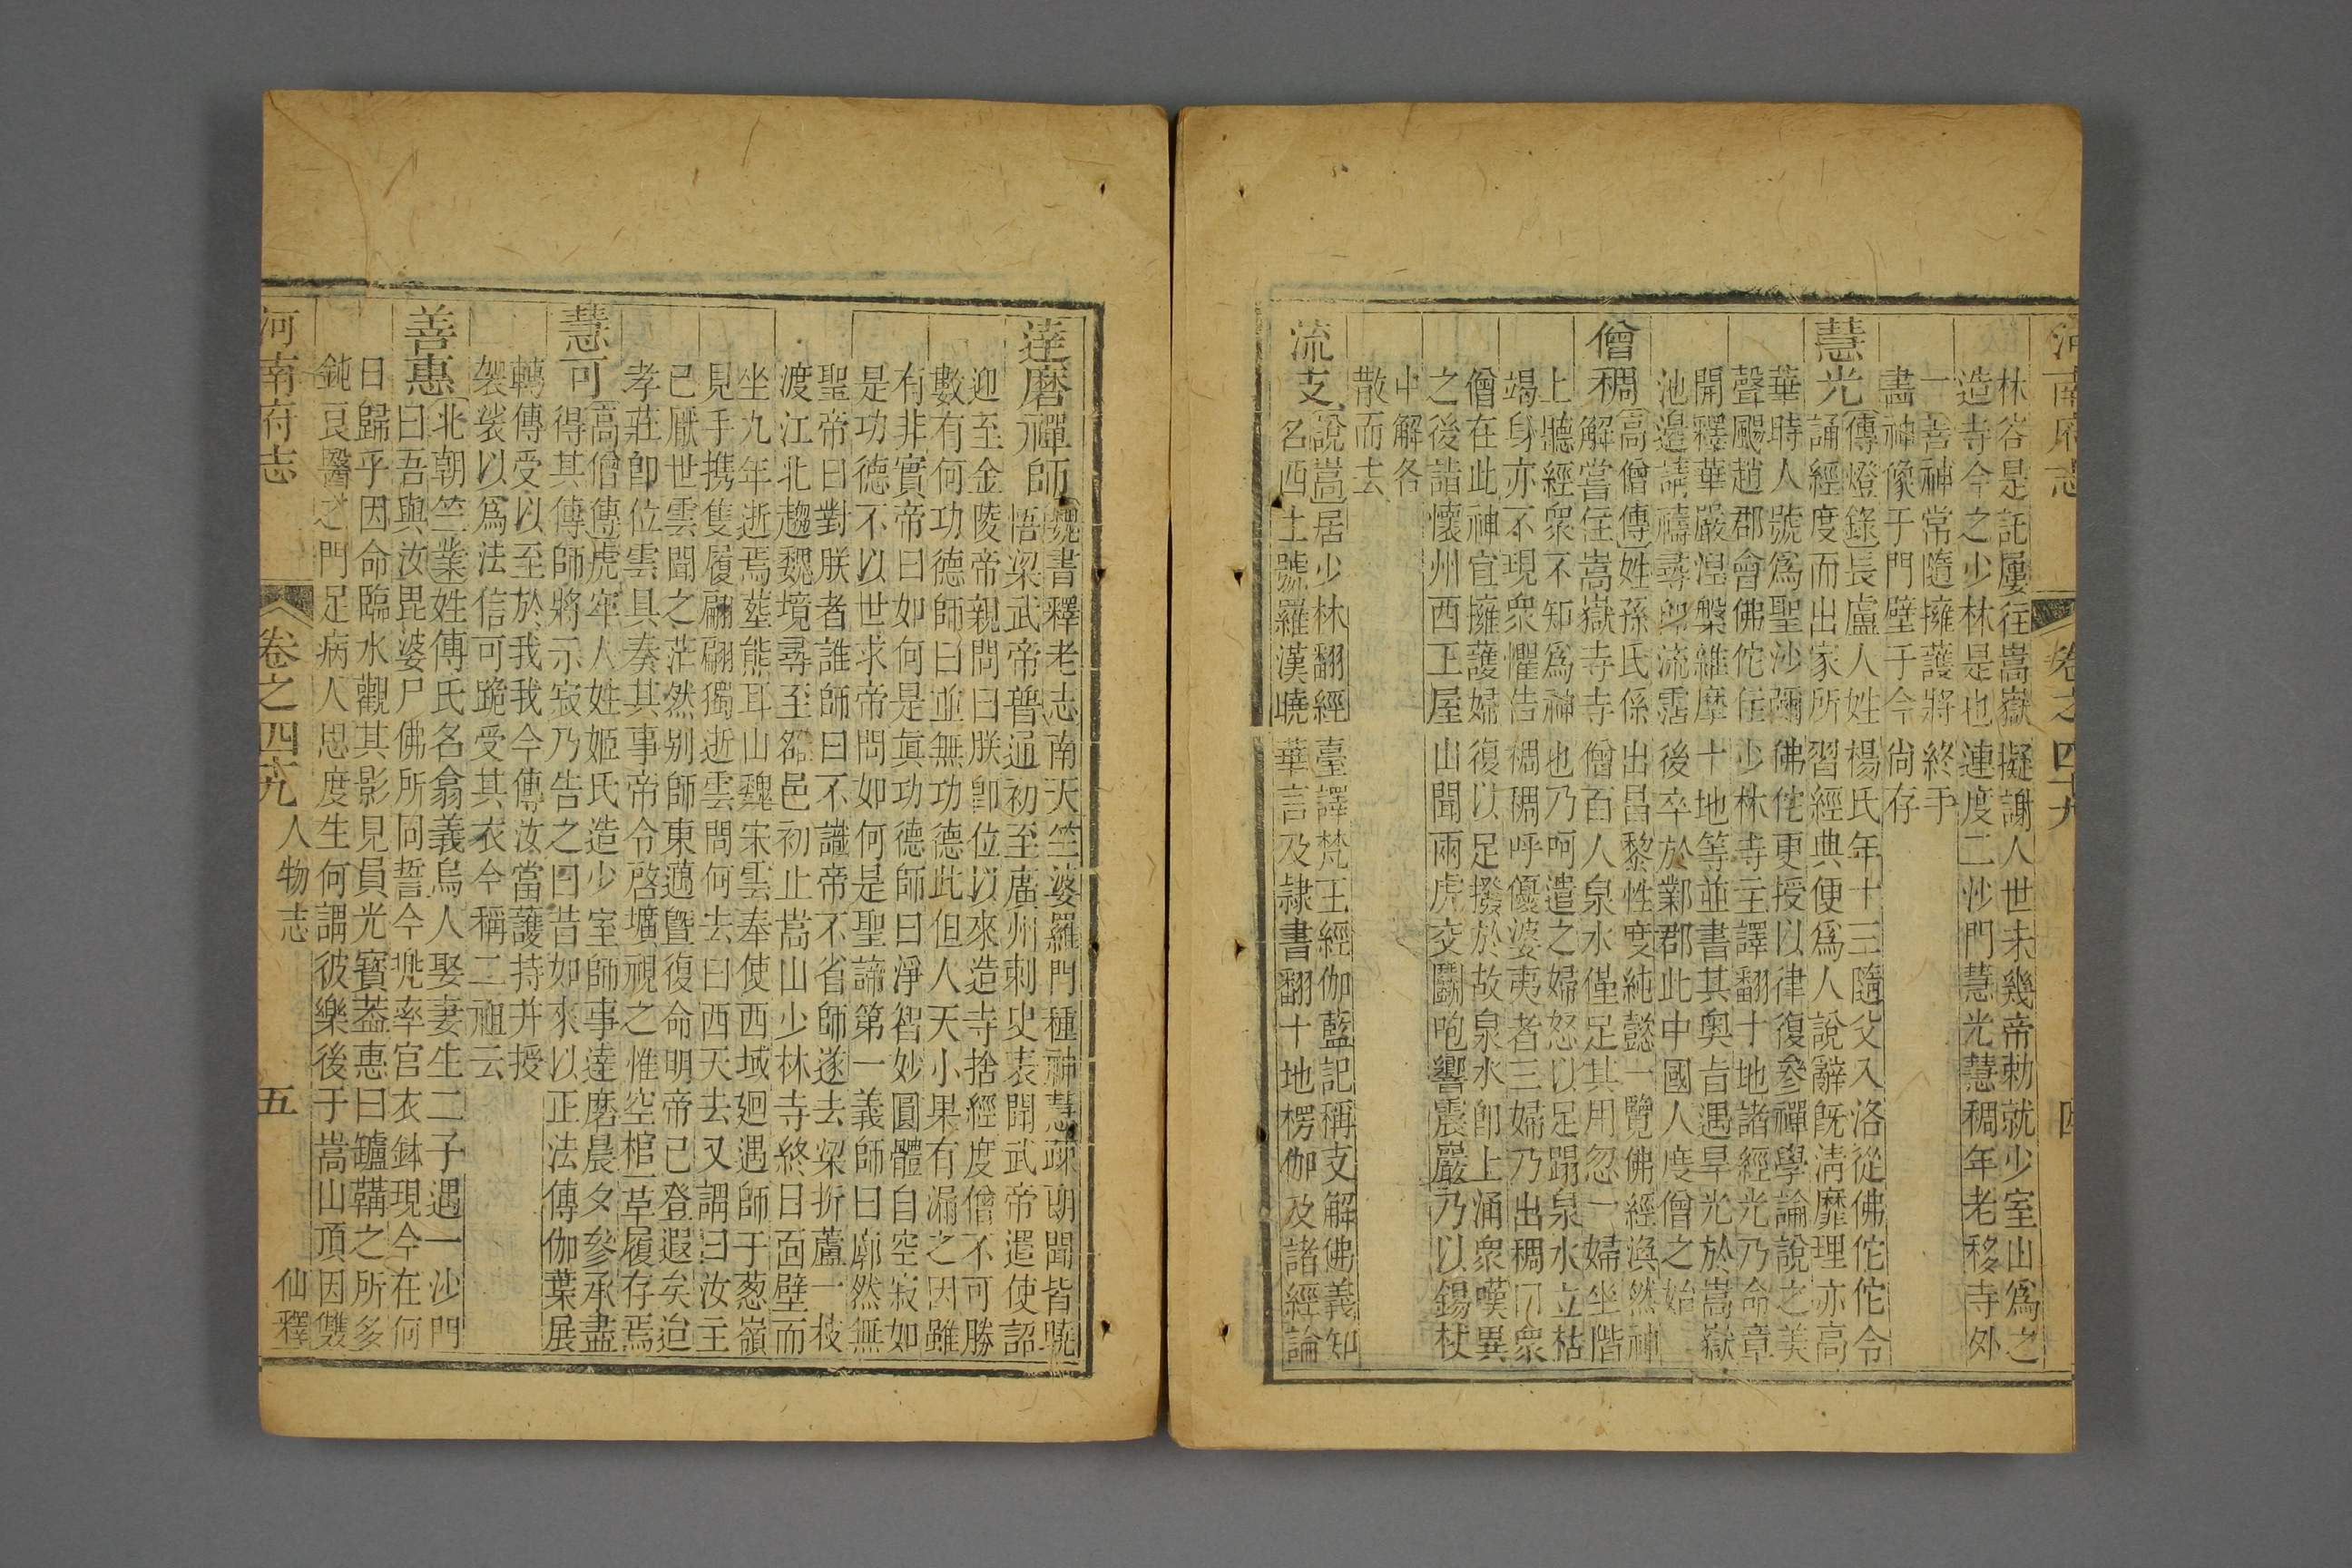 河南府志
卷之四十九
四
林谷是託屢往嵩嶽擬謝人世未幾帝勅就少室山爲之
造寺今之少林是也連度二沙門慧光慧稠年老移寺外
一善神常隨擁護將終手
畵神像于門壁于今尙存
慧光
傳燈錄長盧人姓楊氏年十三隨父入洛從佛佗佗令
誦經度而出家所習經典便爲人說辭旣淸靡理亦高
華時人號爲聖沙彌佛佗更授以律復參禪學論說之美
聲颺趙郡會佛佗住少林寺主譯翻十地諸經光乃命章
開釋華嚴湼槃維摩十地等並書其奧㫖遇旱光於嵩嶽
池邉請禱尋卽流霑後卒於鄴郡此中國人度僧之始
僧稠
高僧傳姓孫氏係出昌黎性度純懿一覽佛經渙然神
解嘗住嵩嶽寺寺僧百人泉水僅足其用忽一婦坐階
上聽經衆不知爲神也乃呵遣之婦怒以足蹋泉水立枯
竭身亦不現衆懼告稠稠呼優婆夷者三婦乃出稠曰衆
僧在此神宜擁護婦復以足撥於故泉水卽上涌衆嘆異
之後詣懷州西王屋山聞兩虎交鬬咆響震巖乃以錫杖
中解各
散而去
流支
說嵩居少林翻經臺譯梵王經伽藍記稱支解佛義知
名西土號羅漢曉華言及隷書翻十地楞伽及諸經論
達磨禪師
魏書釋老志南天竺婆羅門種神慧疎朗聞皆曉
悟梁武帝普通初至廣州刺史表聞武帝遣使詔
迎至金陵帝親問曰朕卽位以來造寺捨經度僧不可勝
數有何功德師曰並無功德此但人天小果有漏之因雖
有非實帝曰如何是眞功德師曰淨智妙圓體自空寂如
是功德不以世求帝問如何是聖諦第一義師曰廓然無
聖帝曰對朕者誰師曰不識帝不省師遂去梁折蘆一枝
渡江北趨魏境尋至洛邑初止嵩山少林寺終日面壁而
坐九年逝焉葬熊耳山魏宋雲奉使西域廻遇師于葱嶺
見手携隻履翩翩獨逝雲問何去曰西天去又謂曰汝主
已厭世雲聞之茫然别師東邁曁復命明帝已登遐矣迨
孝莊卽位雲具奏其事帝令啓壙視之惟空棺一草履存焉
慧可
高僧傳虎牢人姓姬氏造少室師事達磨晨夕參承盡
得其傳師將示寂乃告之曰昔如來以正法傳伽葉展
轉傳受以至於我我今傳汝汝當護持并授
袈裟以爲法信可跪受其衣今稱二祖云
善惠
北朝竺業姓傅氏名翕義烏人娶妻生二子遇一沙門
曰吾與汝毘婆尸佛所同誓今兠率宮衣鉢現今在何
日歸乎因命臨水觀其影見員光寶葢惠曰罏鞲之所多
鈍良醫之門足病人思度生何謂彼樂後于嵩山頂因雙
河南府志
卷之四十九
人物志
仙釋
五